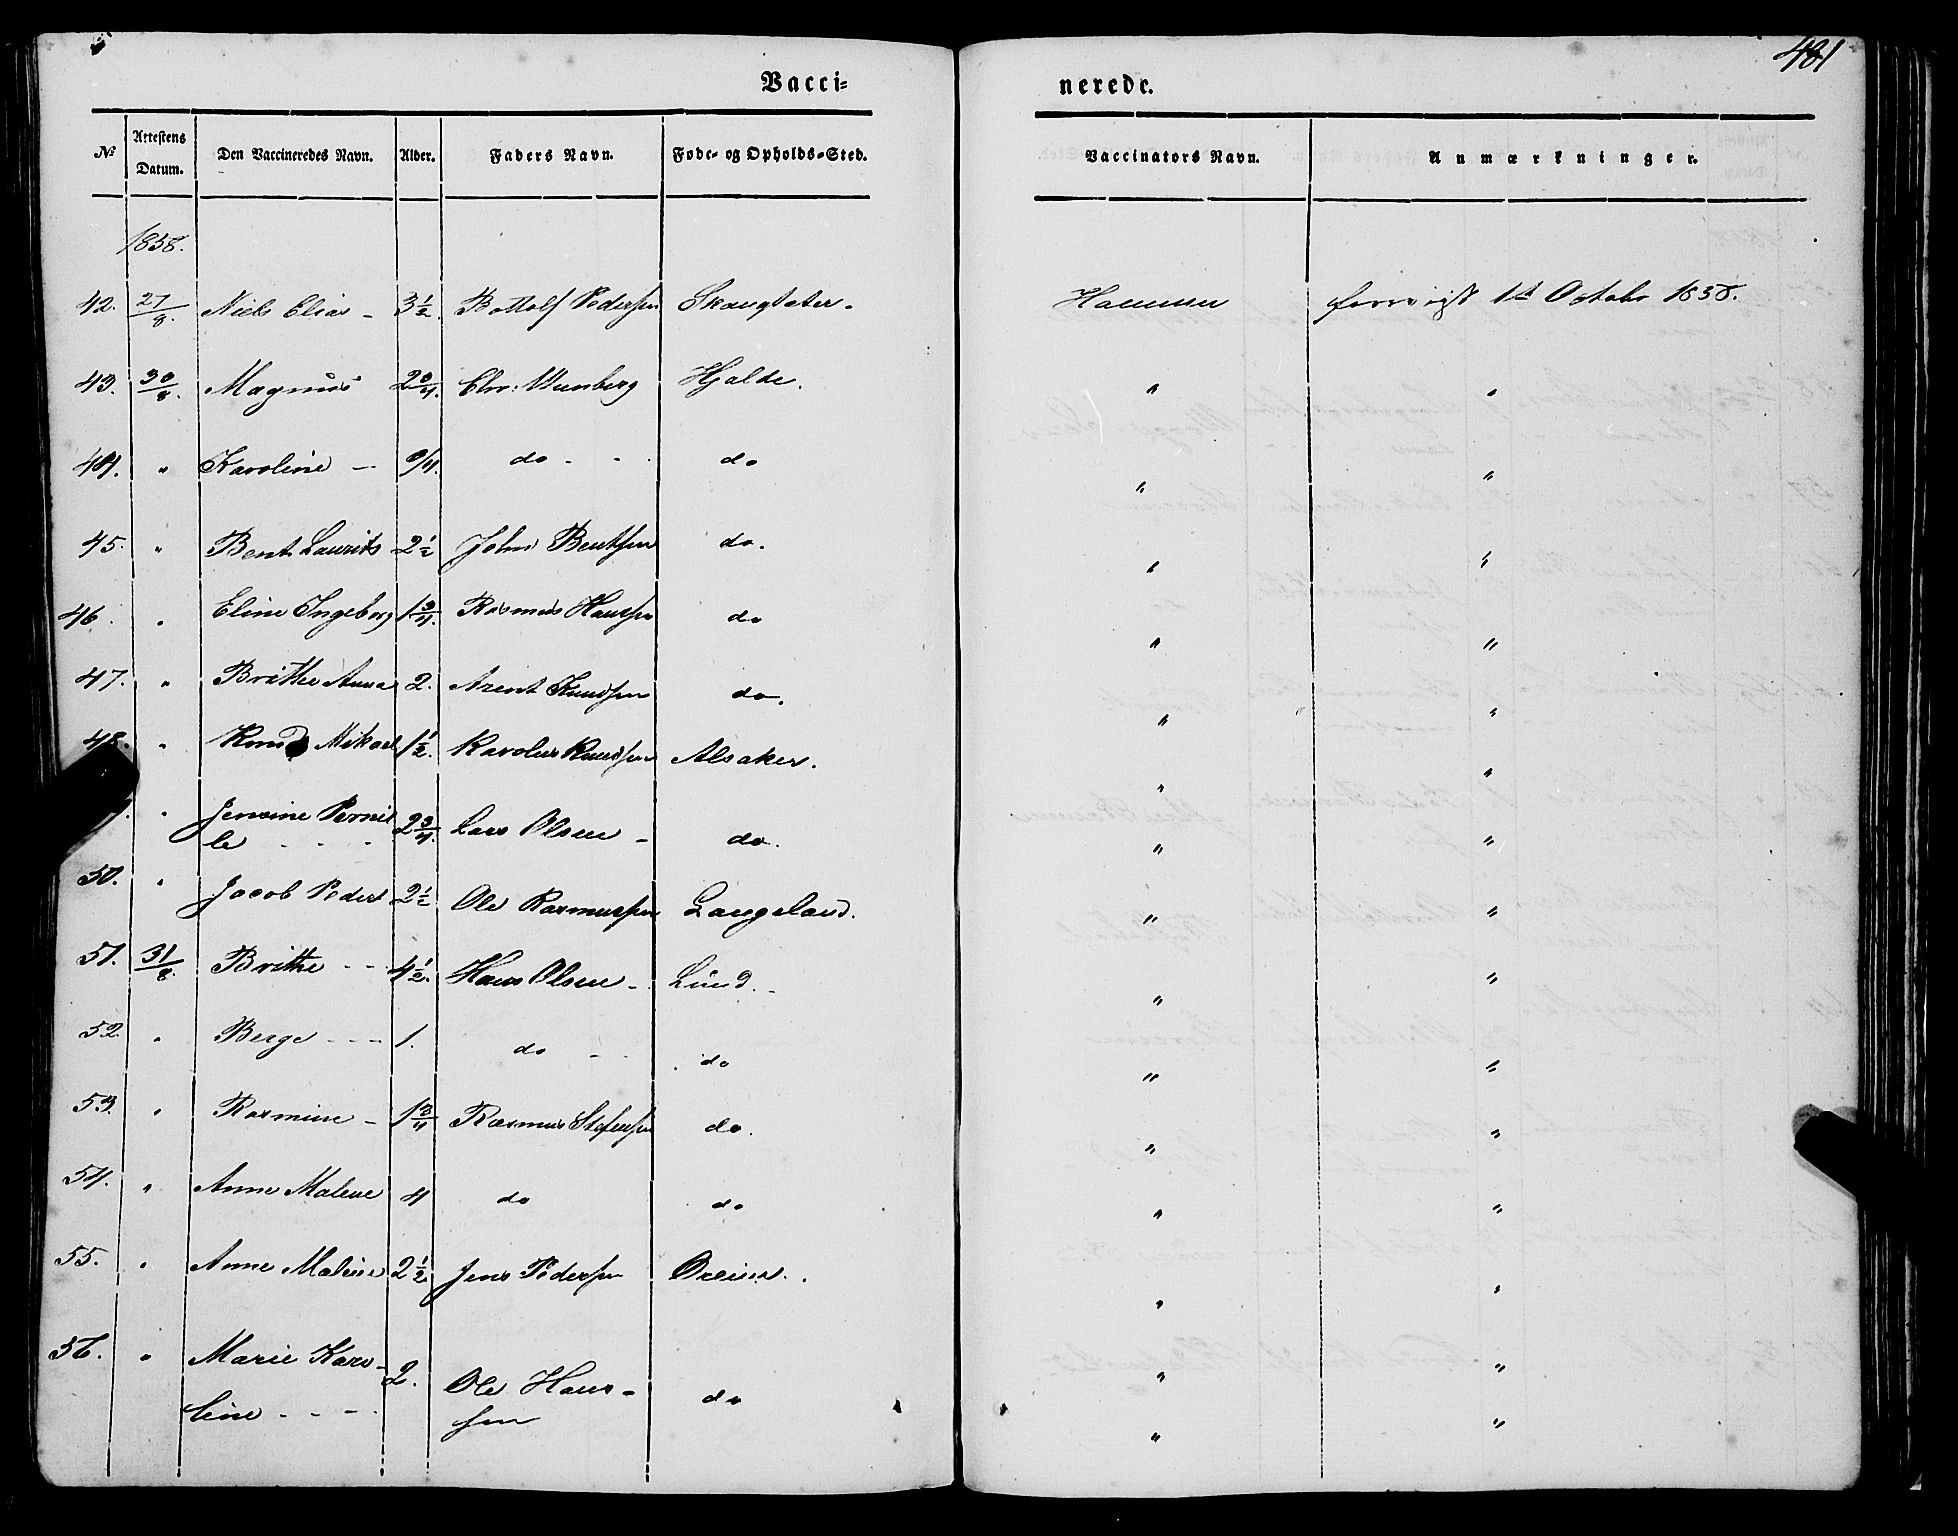 481
Vacci=
neredc.
No
Attestens Datum.
Den Vaccineredes Navn.
Alder.
Faders Navn.
Føde- og Opholds-Sted.
Vaccinators Navn.
Anmærkninger.
1858.
42. 27/8. Niels Elias - 3 1/2 Bottolf Pedersen Hammer 1st October 1858.
43. 30/8. Magnus 2 3/4. Chr: Hjalde. " "
44. " Karoline - 3/4. do - - do " "
45. " Bent Laurits 2 1/2 John Bentsen do. " "
46. " Eline Ingeborg 1 3/4. Rasmus Hansen do " "
47. " Brithe Anna 2. Arent Knudsen do. " "
48. " Knud Mikael 1 1/2. Karolus Knudsen Alsaker. " "
" Pernil
le - - - 2 3/4. Lars Olsen - do. " "
50. " Jacob Peder 2 1/2 Ole Rasmussen Langeland. " "
51. 31/8. Brithe - - 4 1/2. Hans Olsen - Lund. - " "
52. " Berge - - - 1. do - - do " "
53. " Rasmine - 1 3/4 Rasmus Stefensen do. " "
54. " Anne Malene 4 do do " "
55. " Anne Malene 2 1/2 Jens Pedersen " "
56. " Marie Karo- 2. Ole Han- do " "
line - - - sen " "